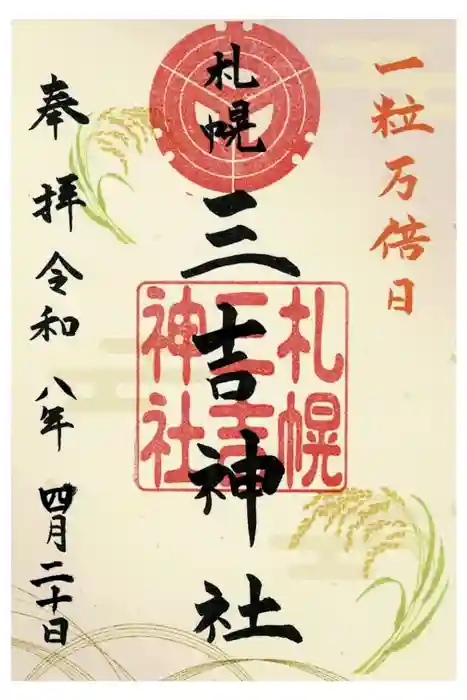 一粒万倍日
札幌
三吉神社
札幌
三吉
神社
奉拝 令和八年 四月二十日